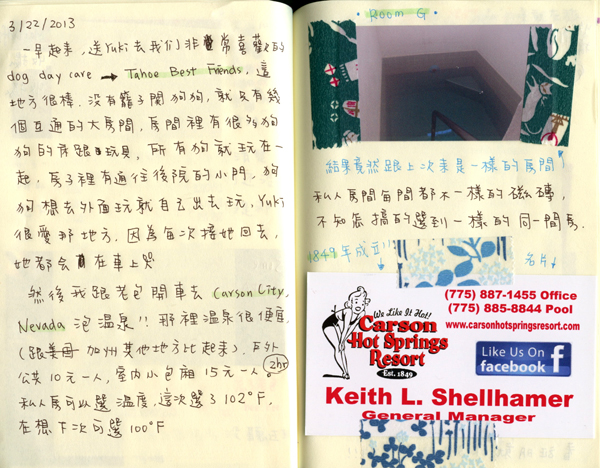 3/22/2013
一早起來, 送Yuki去我們非常喜歡的
dog day care → Tahoe Best Friends, 這
地方很棒. 沒有籠子關狗狗, 就只有幾
個互通的大房間, 房間裡有很多狗
狗的床跟玩具, 所有狗就玩在一
起, 房子裡有通往後院的小門, 狗
狗想去外面玩就自己出去玩, Yuki
很愛那地方, 因為每次接她回去,
她都會在車上哭
然後我跟老包開車去 Carson City,
Nevada 泡溫泉!! 那裡溫泉很便宜
(跟美國 加州其他地方比起來). 戶外
公共10元一人, 室內小包廂15元一人。 2hr
私人房可以選溫度, 這次選了102°F,
在想下次可選100°F
· Room G ·
結果竟然跟上次來是一樣的房間
私人房間每間都不一樣的磁磚,
不知怎搞的選到一樣的同一間房.
1849年成立!!
名片
We Like It Hot!
Carson
Hot Springs
Resort
Est. 1849
(775) 887-1455 Office
(775) 885-8844 Pool
www.carsonhotspringsresort.com
Like Us On
facebook
f
Keith L. Shellhamer
General Manager